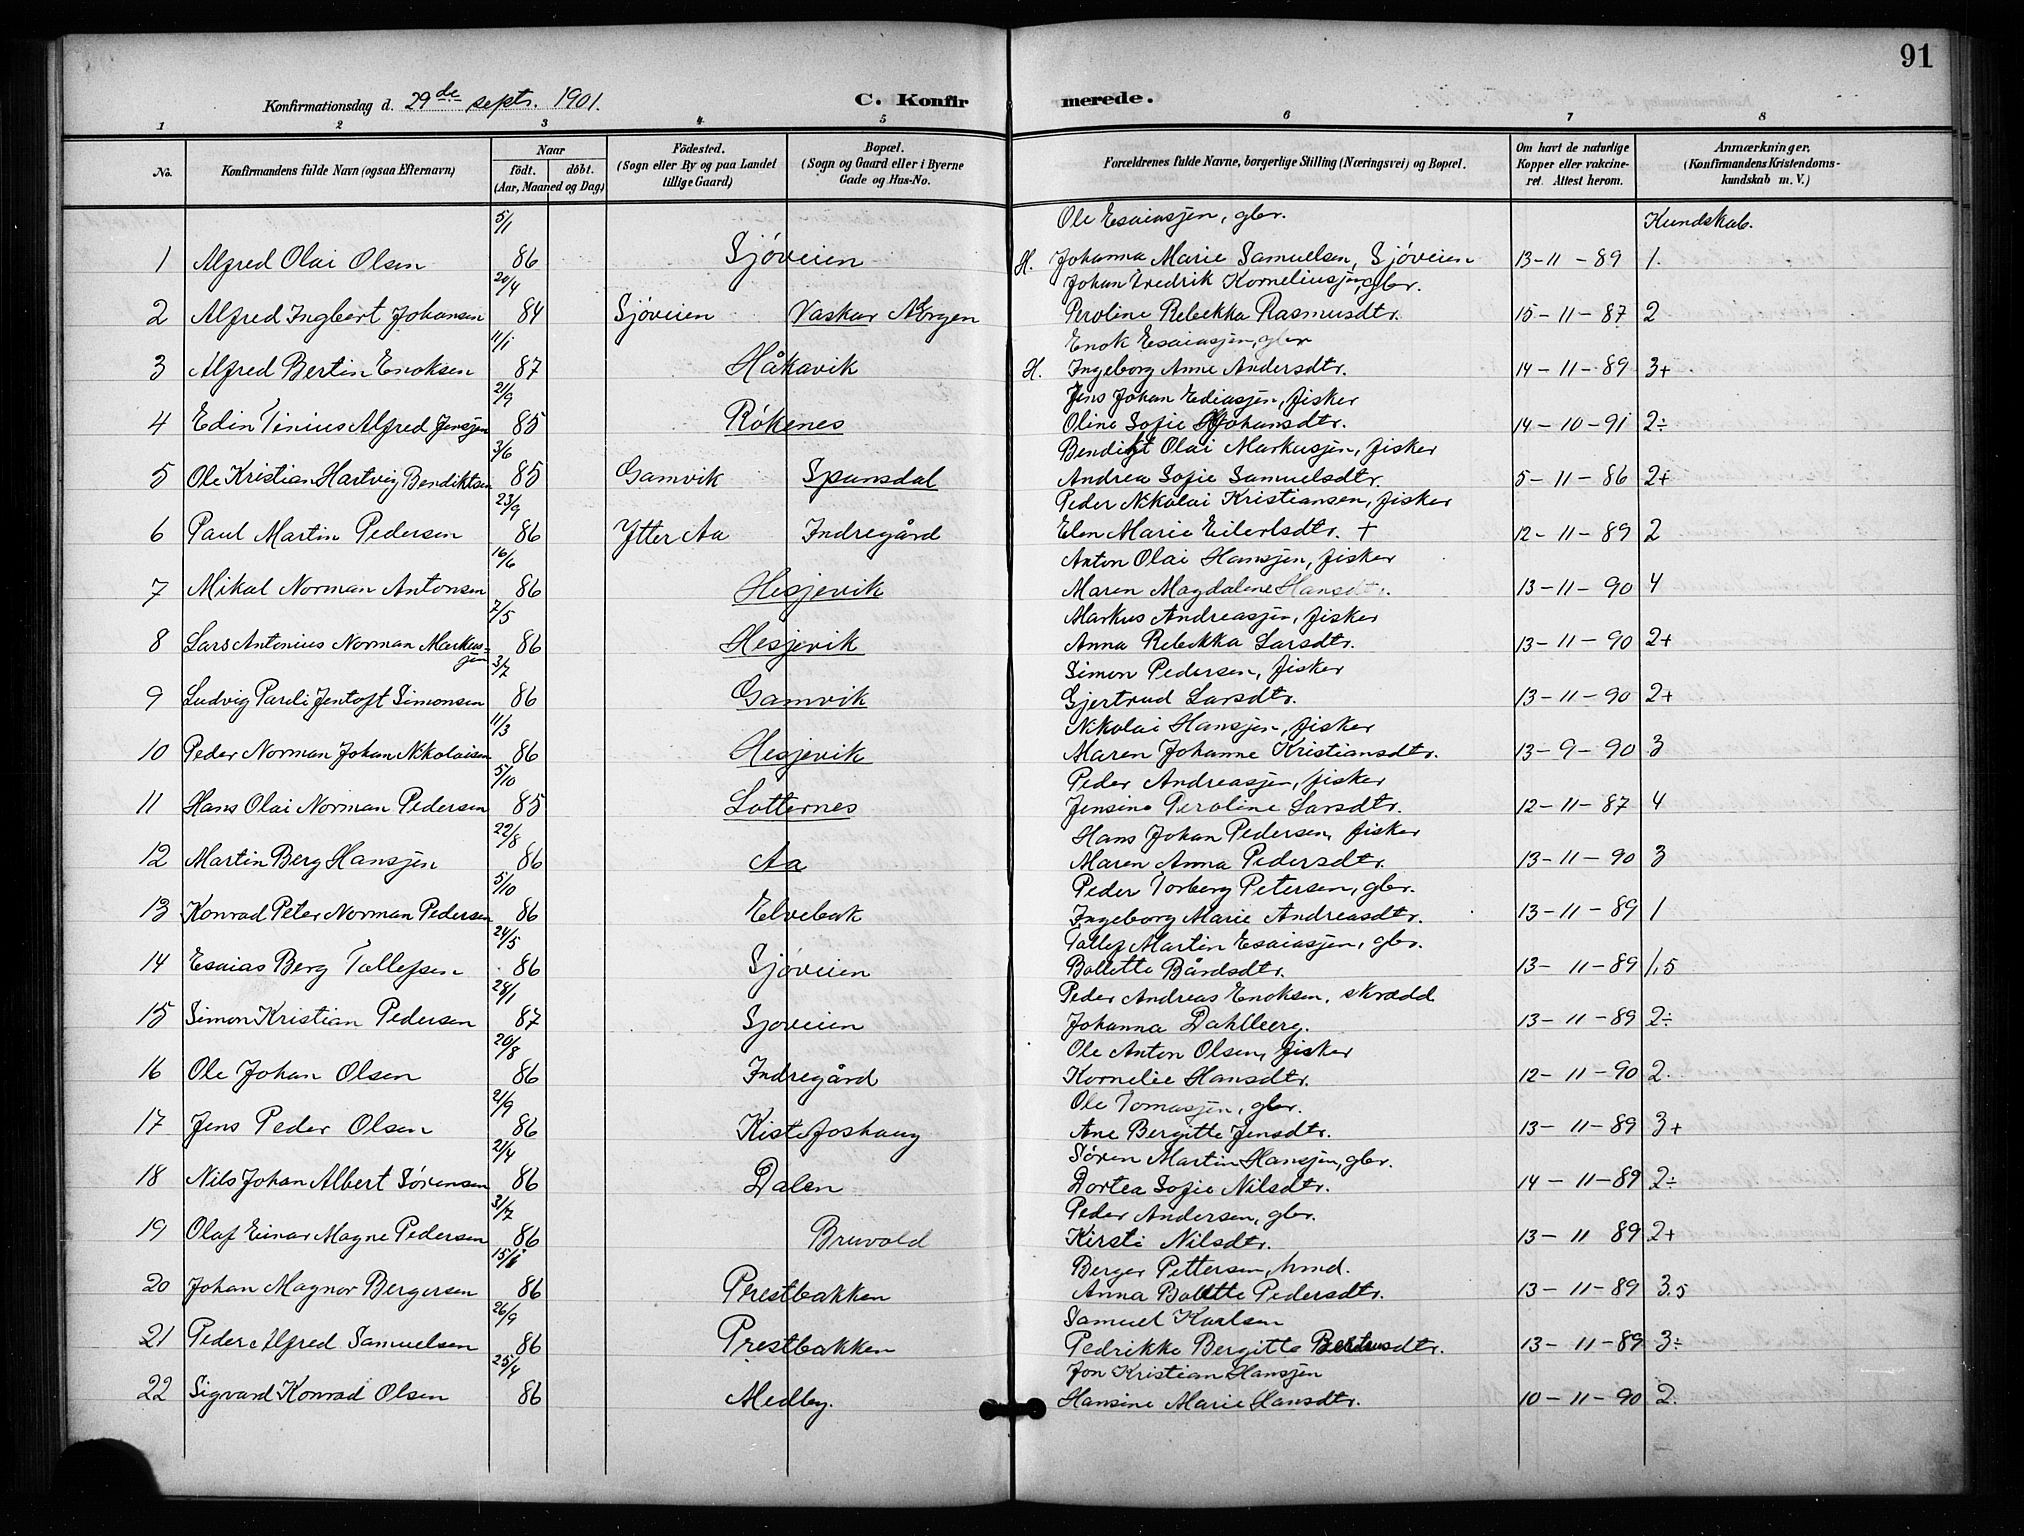 91
Konfirmationsdag d. 29de septr. 1901. C. Konfirmerede.
1 2 3 4 5 6 7 8
No. Konfirmandens fulde Navn (ogsaa Efternavn) Naar födt. döbt. (Aar, Maaned og Dag) Födested. (Sogn eller By og paa Landet tillige Gaard) Bopæl. (Sogn og Gaard eller i Byerne Gade og Hus-No. Forældrenes fulde Navne, borgerlige Stilling (Næringsvei) og Bopæl. Om havt de naturlige Kopper eller vakcineret. Attest herom. Anmærkninger. (Konfirmandens Kristendomskundskab m. V.)
5/1 Ole Esaiasjen, gbr. Kundskab.
1 Alfred Olai Olsen 86 Sjöveien H. Johanna Marie Samuelsen, Sjöveien 13-11-89 1.
20/4 Johan Fredrik Korneliusjen, gbr.
2 Alfred Ingbert Johansen 84 Sjöveien Vaskar Norgen Peroline Rebekka Rasmusdtr. 15-11-87 2
11/1 Enok Esaiasjen, gbr
3 Alfred Bertin Enoksen 87 Håkavik H. Ingeborg Anne Andersdtr. 14-11-89 3+
21/9 Jens Johan Ediasjen, fisker
4 Edin Tinius Alfred Jensjen 85 Rökenes Oline Sofie Johansdtr. 14-10-91 2÷
3/6 Bendikt Olai Markusjen, fisker
5 Ole Kristian Hartvig Bendiktsen 85 Gamvik Spansdal Andrea Sofie Samuelsdtr. 5-11-86 2+
23/9 Peder Nikolai Kristiansen, fisker
6 Paul Martin Pedersen 86 Ytter Aa Indregård Elen Marie Eilertsdtr. + 12-11-89 2
16/6 Anton Olai Hansjen, fisker
7 Mikal Norman Antonsen 86 Hesjevik Maren Magdalene Hansdtr. 13-11-90 4
7/5 Markus Andreasjen, fisker
8 Lars Antonius Norman Markus- 86 Hesjevik Anna Rebekka Larsdtr. 13-11-90 2+
jen 3/7 Simon Pedersen, fisker
9 Ludvig Pareli Jentoft Simonsen 86 Gamvik Gjertrud Larsdtr. 13-11-90 2+
11/3 Nikolai Hansjen, fisker
10 Peder Norman Johan Nikolaisen 86 Hesjevik Maren Johanne Kristiansdtr. 13-9-90 3
5/10 Peder Andreasjen, fisker
11 Hans Olai Norman Pedersen 85 Lotternes Jensine Peroline Larsdtr. 12-11-87 4
22/8 Hans Johan Pedersen, fisker
12 Martin Berg Hansjen 86 Aa Maren Anna Pedersdtr. 13-11-90 3
5/10 Peder Torberg Petersen, gbr.
13 Konrad Peter Norman Pedersen 86 Elvebak Ingeborg Marie Andreasdtr. 13-11-89 1
24/5 Tollef Martin Esaiasjen, gbr.
14 Esaias Berg Tollefsen 86 Sjöveien Bollette Bårdsdtr. 13-11-89 1,5
28/1 Peder Andreas Enoksen, skrædd.
15 Simon Kristian Pedersen 87 Sjoveien Johanna Dahlberg. 13-11-89 2÷
20/8 Ole Anton Olsen, fisker
16 Ole Johan Olsen 86 Indregård Kornelie Hansdtr. 12-11-90 2.
21/9 Ole Tomasjen, gbr.
17 Jens Peder Olsen 86 Kistefoshaug Ane Bergitte Jensdtr. 13-11-89 3+
21/4 Sören Martin Hansjen, gbr.
18 Nils Johan Albert Sörensen 86 Dalen Dortea Sofie Nilsdtr. 14-11-89 2÷
31/7 Peder Andersen, gbr.
19 Olaf Einar Magne Pedersen 86 Bruvold Kirsti Nilsdtr. 13-11 89 2+
15/1 Berger Pettersen, hmd.
20 Johan Magnor Bergersen 86 Prestbakken Anna Bolette Pedersdtr. 13-11-89 3.5
26/9 Samuel Karlsen
21 Peder Alfred Samuelsen 86 Prestbakken Pedrikke Bergitte 13-11-89 3÷
25/4 Jon Kristian Hansjen
22 Sigvard Konrad Olsen 86 Medby. Hansine Marie Hansdtr. 10-11-90 2.